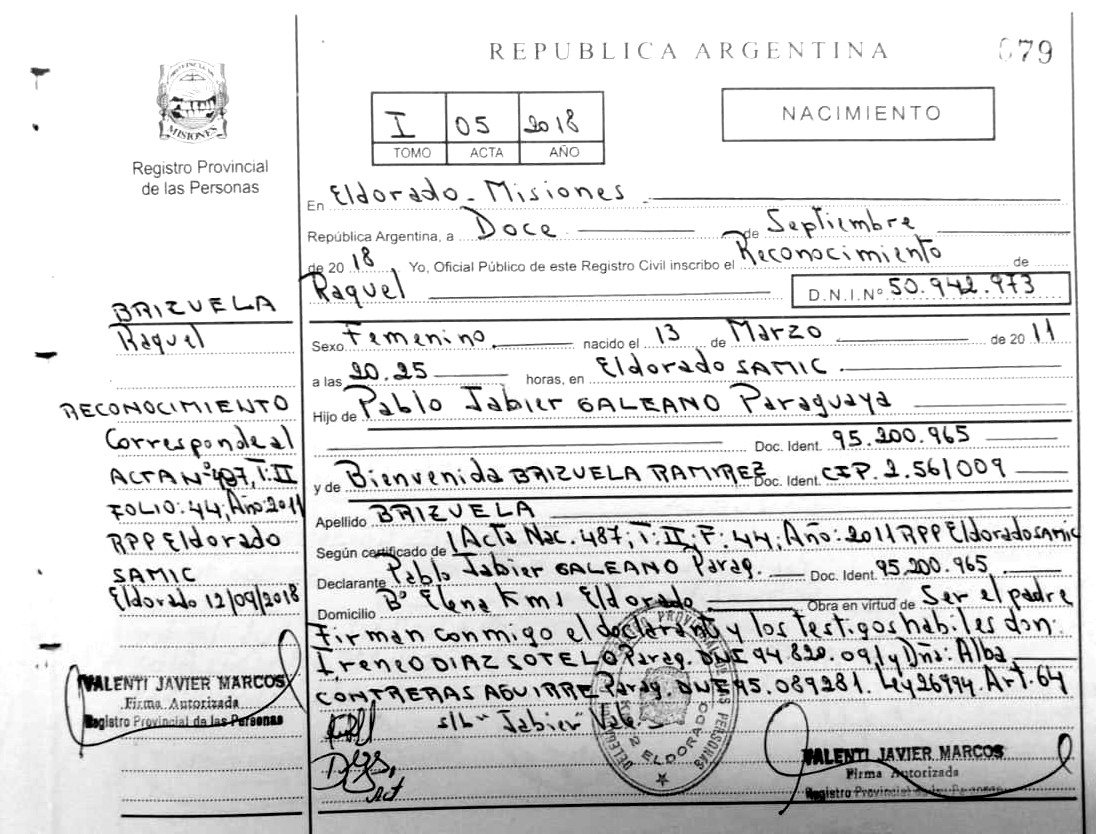 REPUBLICA ARGENTINA
679
PROVINCIA DE
MISIONES
Registro Provincial
de las Personas
I 05 2018
TOMO ACTA AÑO
NACIMIENTO
En Eldorado - Misiones
República Argentina, a Doce de Septiembre
de 2018 Yo, Oficial Público de este Registro Civil inscribo el Reconocimiento de
Raquel D.N.I.Nº 50.942.973
Sexo Femenino. nacido el 13 de Marzo de 2011
a las 20.25 horas, en Eldorado SAMIC
Hijo de Pablo Jabier GALEANO Paraguaya
Doc. Ident. 95.200.965
y de Bienvenida BRIZUELA RAMIREZ Doc. Ident. CIP. 2.561009
Apellido BRIZUELA
Según certificado de Acta Nac. 487; T: II; F: 44; Año: 2011 RPP Eldorado SAMIC
Declarante Pablo Jabier GALEANO Parag. Doc. Ident. 95.200.965
Domicilio Bº Elena Km 1 Eldorado Obra en virtud de Ser el padre
Firman conmigo el declarante y los testigos habiles don:
Ireneo DIAZ SOTELO Parag. DNI 94 820.091 y Dña: Alba
CONTRERAS AGUIRRE Parag. DNI 95.089281. Ley 26994. Art. 64
s/b "Jabier" Vale
BRIZUELA
Raquel
RECONOCIMIENTO
Corresponde al
ACTA Nº 487, T: II
FOLIO: 44; Año: 2011
RPP Eldorado
SAMIC
Eldorado 12/09/2018
VALENTI JAVIER MARCOS
Firma Autorizada
Registro Provincial de las Personas
REGISTRO PROVINCIAL DE LAS PERSONAS
ELDORADO
VALENTI JAVIER MARCOS
Firma Autorizada
Registro Provincial de las Personas